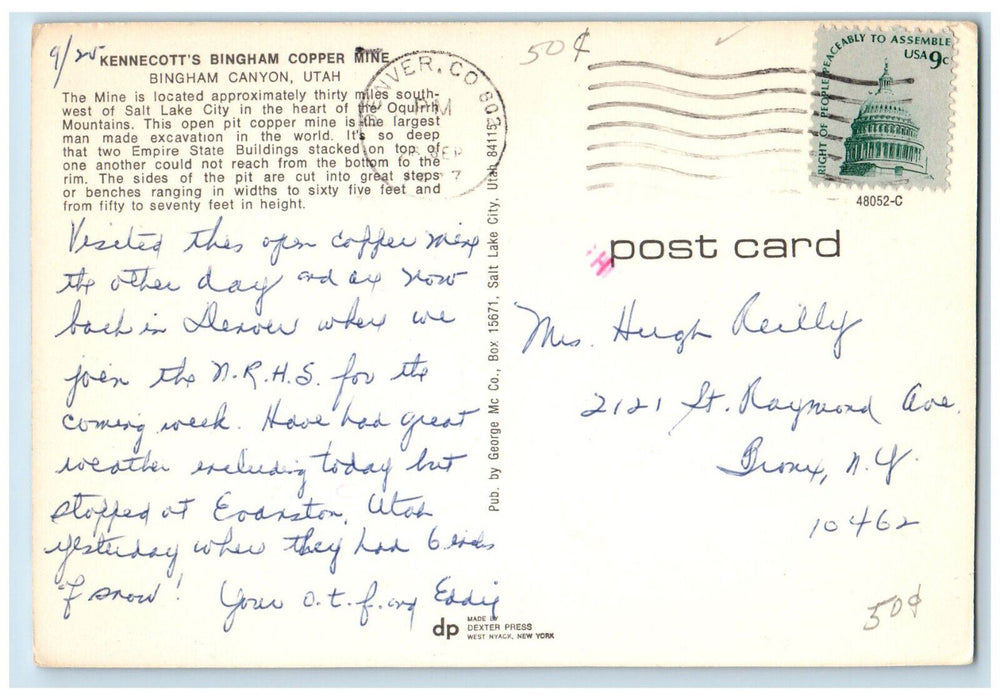 9/25
KENNECOTT'S BINGHAM COPPER MINE
BINGHAM CANYON, UTAH
The Mine is located approximately thirty miles south-
west of Salt Lake City in the heart of the Oquirrh
Mountains. This open pit copper mine is the largest
man made excavation in the world. It's so deep
that two Empire State Buildings stacked on top of
one another could not reach from the bottom to the
rim. The sides of the pit are cut into great steps
or benches ranging in widths to sixty five feet and
from fifty to seventy feet in height.
Visited this open copper mine
the other day and are now
back in Denver where we
join the N.R.H.S. for the
coming week. Have had great
weather including today but
stopped at Evanston, Utah
yesterday where they had 6 inches
of snow!
Your o.t.f. Eddie
Pub. by George Mc Co., Box 15671, Salt Lake City, Utah 84115
dp
MADE BY
DEXTER PRESS
WEST NYACK, NEW YORK
50¢
DENVER, CO 802
PM
SEP
RIGHT OF PEOPLE PEACEABLY TO ASSEMBLE
USA 9c
48052-C
post card
Mrs. Hugh Reilly
2121 St. Raymond Ave.
Bronx, N.Y.
10462
50¢